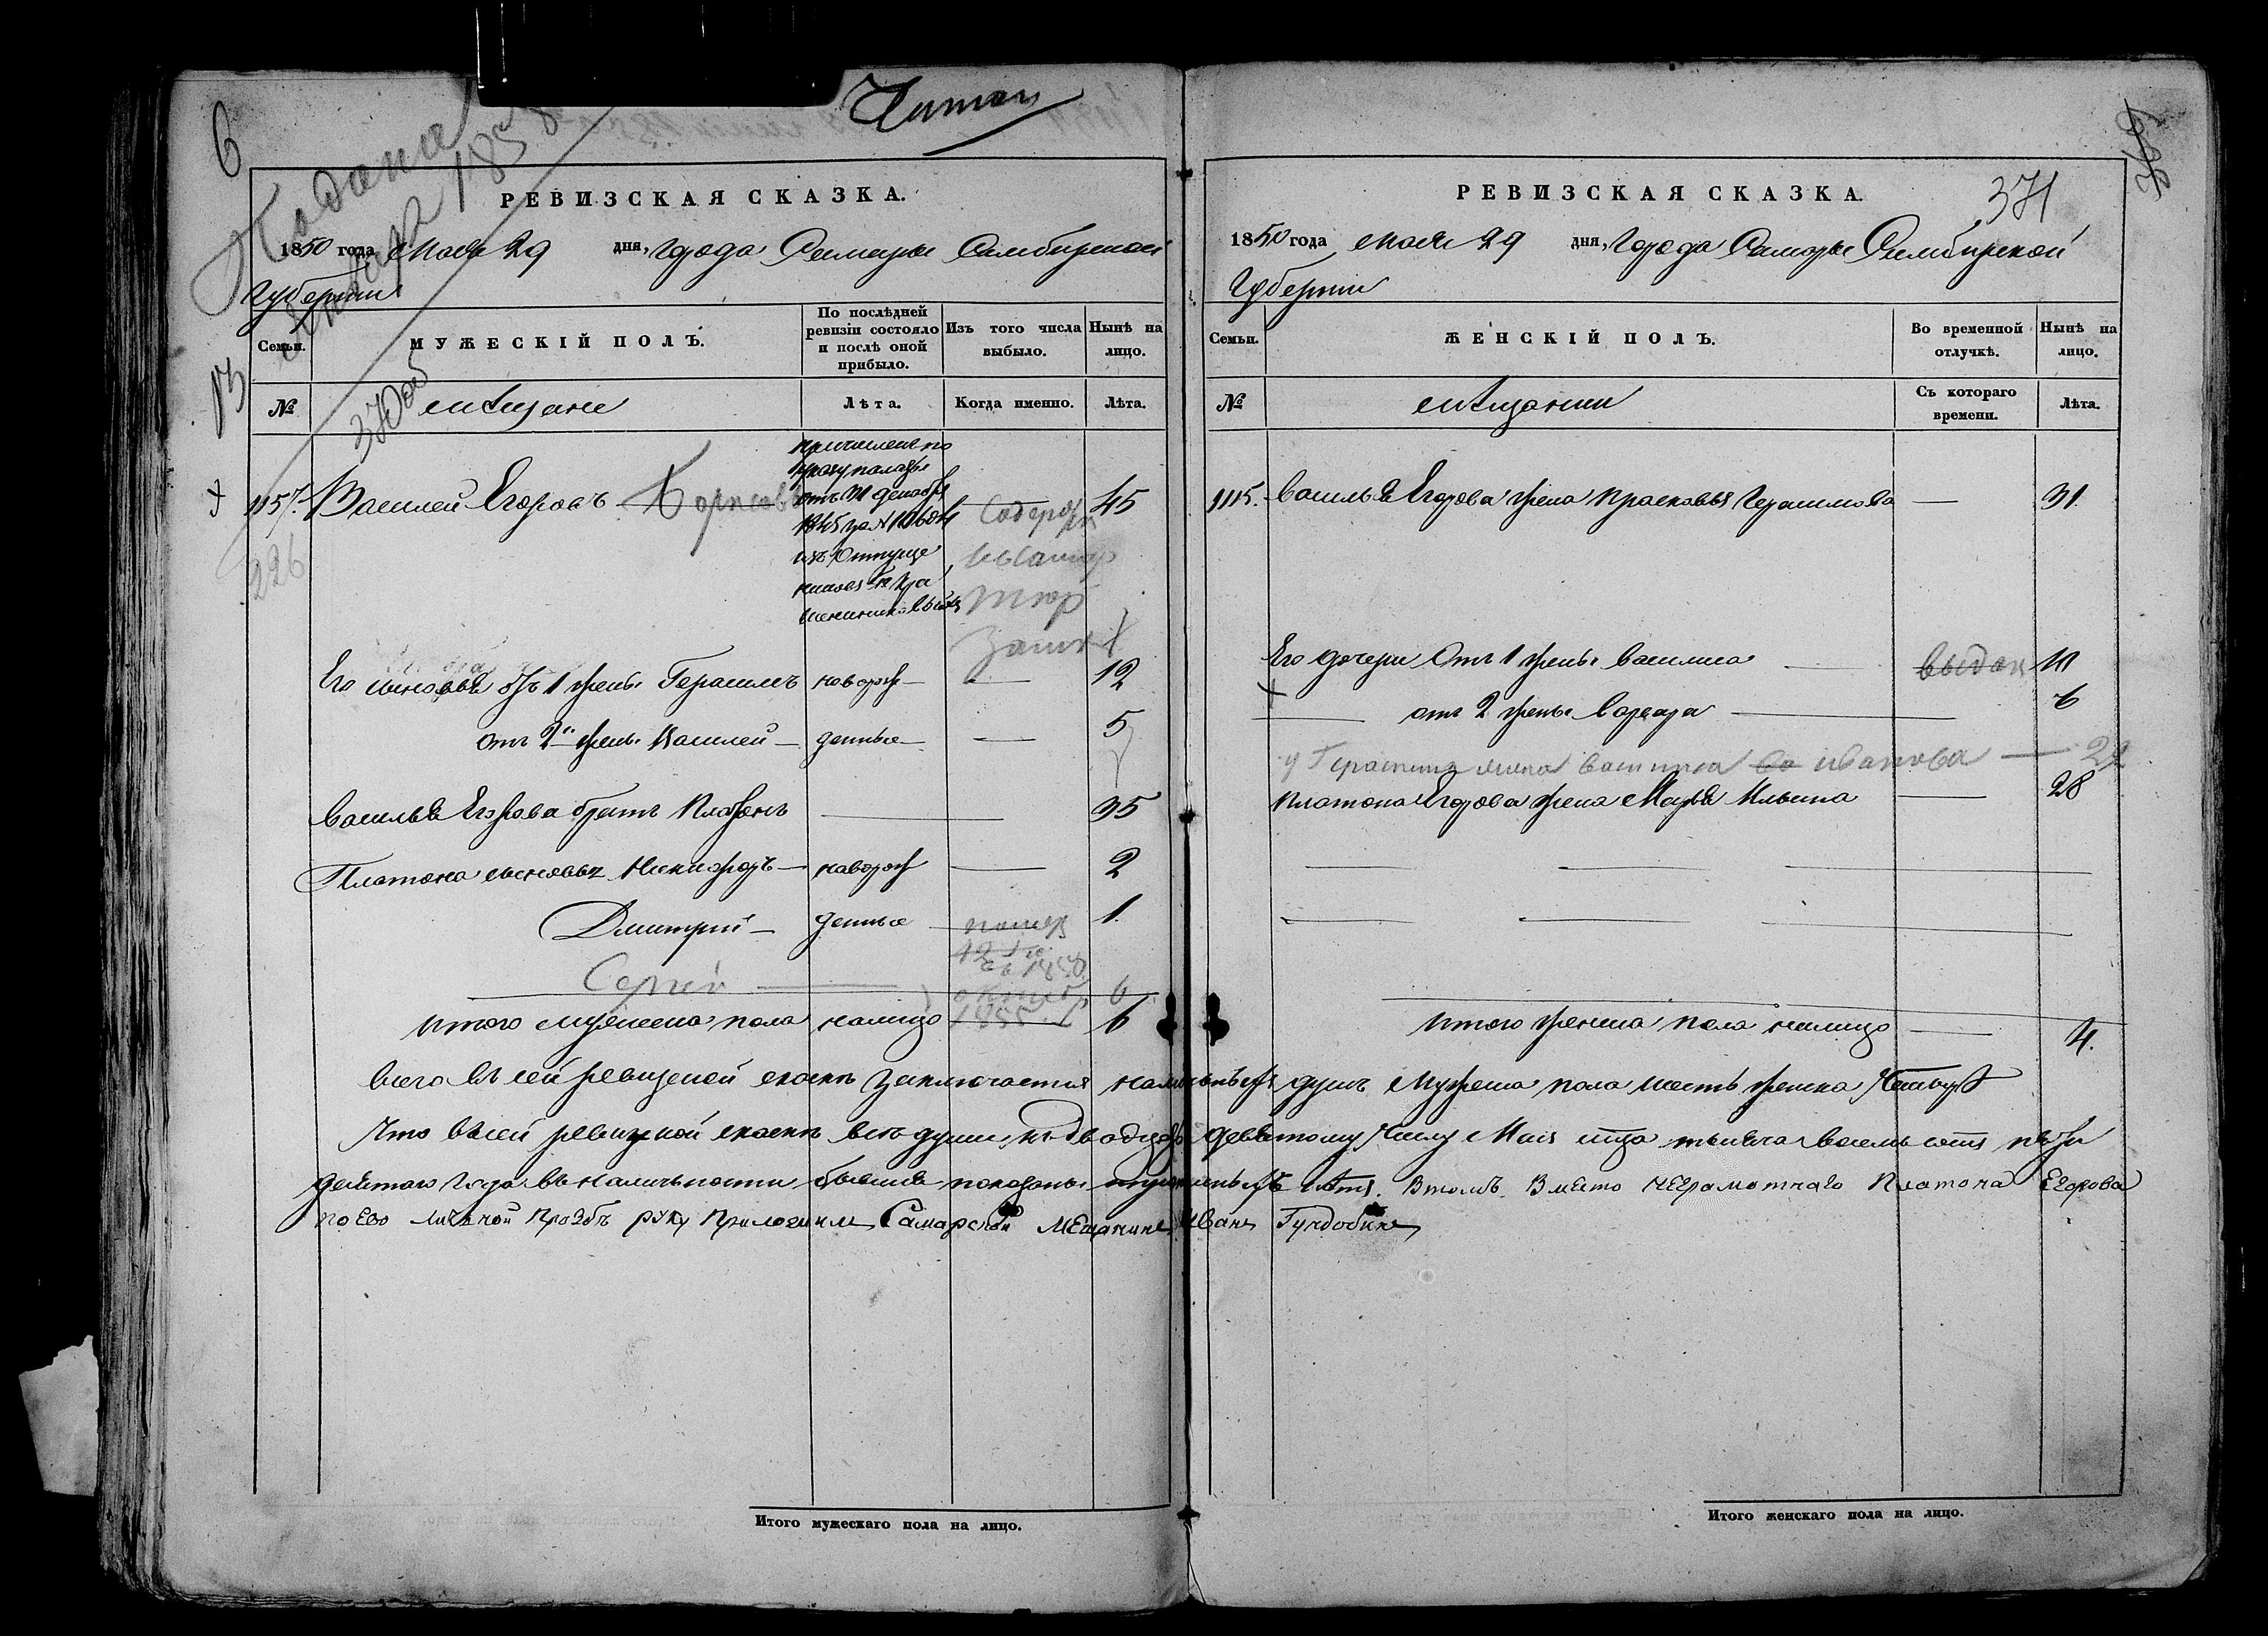 6
Читан
Подана
января 1858
13
370 об
РЕВИЗСКАЯ СКАЗКА.
1850 года Мая 29 дня, Города Самары Симбирской
Губернии
Семьи.
МУЖЕСКІЙ ПОЛЪ.
По послѣдней ревизіи состояло и послѣ оной прибыло.
Изъ того числа выбыло.
Нынѣ на лицо.
№
мещане
Лѣта.
Когда именно.
Лѣта.
1157. Василей Егоровъ Борисовъ
причислен по
указу палаты
отъ 31 декабря
1845 за №
изъ отпуще
45
226
Его сыновья отъ 1 жены Герасимъ новорож — 12
отъ 2й жены Василей — денные — 5
Васильѧ Егорова братъ Платонъ — 35
Платона сыновья Никифоръ — новорож — 2
Дмитрій — денные помер 1.
Сергей
1855 г
Итого мужеска пола налицо 6
РЕВИЗСКАЯ СКАЗКА.
371
369
1850 года Мая 29 дня, Города Самары Симбирской
Губернии
Семьи.
ЖЕНСКІЙ ПОЛЪ.
Во временной отлучкѣ.
Нынѣ на лицо.
№
мещанки
Съ котораго времени.
Лѣта.
1115. Васильѧ Егорова жена Прасковья Герасимова — 31.
Его дочери отъ 1 жены Василиса — выдан 11
отъ 2 жены Варвара — 6
у Герасима жена Иванова — 22
Платона Егорова жена Марья Ильина — 28
Итого женска пола налицо — 4.
Всего въ сей ревизской сказке заключается наличныхъ душъ мужеска пола шесть женска четыре
Что в сей ревизской сказке все души къ двадцать девятому числу Мая мца тысяча восемь сотъ пять
десятаго года в наличности бывшие показаны лета. Втомъ Вместо неграмотнаго Платона Егорова
по Ево личной прозбѣ руку приложилъ Самарской Мещанинъ Иванъ Гундобинъ
Итого мужескаго пола на лицо.
Итого женскаго пола на лицо.